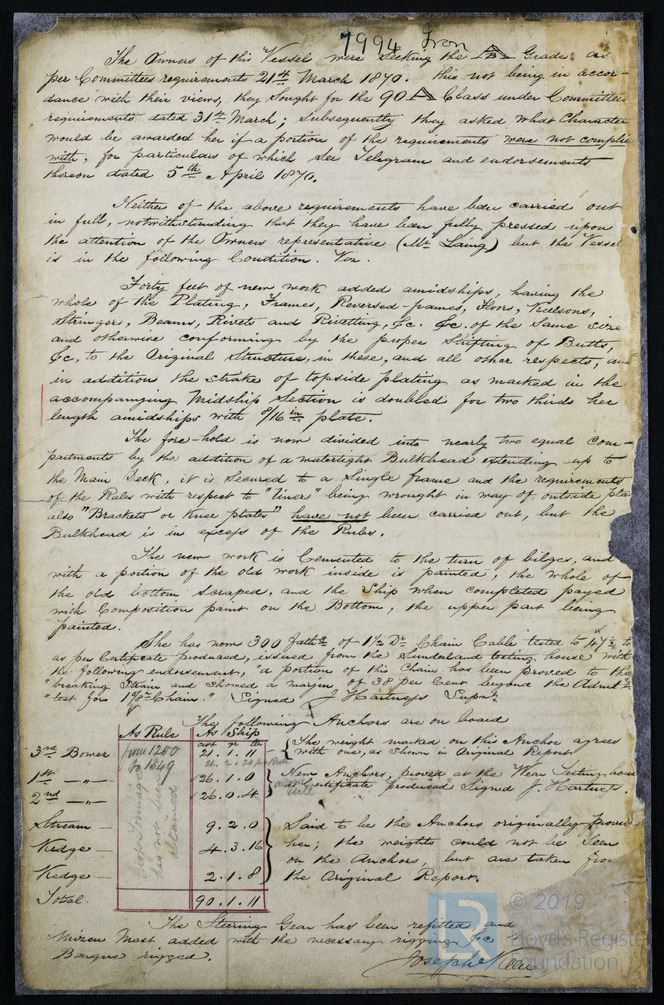 7994 Iron
The Owners of this Vessel were seeking the A Grade as
per Committees requirements 21st March 1870. this not being in accor-
dance with their views, they sought for the 90 A Class under Committee
requirements dated 31st March; Subsequently they asked what Character
would be awarded her if a portion of the requirements were not complie
with, for particulars of which see Telegram and endorsements
thereon dated 5th April 1870.
Neither of the above requirements have been carried out
in full, notwithstanding that they have been fully pressed upon
the attention of the Owners representative (Mr Laing) but the Vessel
is in the following Condition. Viz.
Forty feet of new work added amidships, having the
whole of the Plating, Frames, Reversed-frames, Floors, Keelsons,
Stringers, Beams, Rivets and Rivetting, &c. &c. of the Same size
and otherwise conforming by the proper Shifting of Butts,
&c, to the Original Structure, in these, and all other respects, and
in addition the strake of topside plating as marked in the
accompanying Midship Section is doubled for two thirds her
length amidships with 9/16 in plate.
The fore-hold is now divided into nearly two equal com-
partments by the addition of a watertight Bulkhead extending up to
the Main Deck, it is secured to a Single frame and the requirements
of the Rules with respect to "liners" being wrought in way of outside pla
also "Brackets or Knee plates" have not been carried out, but the
Bulkhead is in excess of the Rules.
The new work is Cemented to the turn of bilges, and
with a portion of the old work inside is painted, the whole of
the old bottom scraped, and the Ship when completed payed
with Composition paint on the Bottom, the upper part being
painted.
She has now 300 faths of 1 1/2 Dr Chain Cable tested to 47
as per Certificate produced, issued from the Sunderland testing house with
the following endorsement, "a portion of this Chain has been proved to the
"breaking Strain and Showed a margin of 38 per Cent beyond the
"test for Chain." Signed J Hartness Supt.
The following Anchors are on board
As Rule As Ship
cwt qr lb
3rd Bower from 1250 to 1849 21.1.11 { The weight marked on this Anchor agrees
with one, as shown in Original Report.
1st —„— 26.1.0 } New Anchors, proved at the Wear Testing house
2nd —„— 26.0.4 } Certificate produced Signed J Hartness.
Stream — 9.2.0 Said to be the Anchors originally
Kedge — 4.3.16 her; the weights could not be seen
on the Anchors, but are taken from
Kedge — 2.1.8 the Original Report.
has not been obtained
Total 90.1.11
The Steering Gear has been refitted and
Mizen Mast added with the necessary rigging &c
Barque rigged.
Joseph
© 2019
Lloyd's Register
Foundation